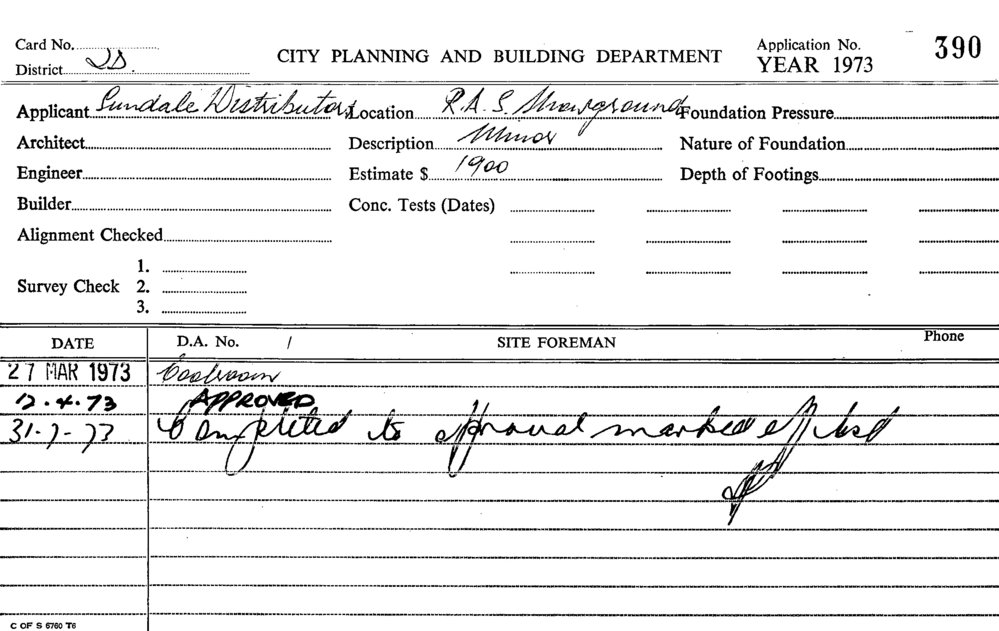 Card No.
CITY PLANNING AND BUILDING DEPARTMENT
Application No. 390
District
YEAR 1973
Applicant Sundale Distributors Location R.A.S. Showground Foundation Pressure
Architect Description Minor Nature of Foundation
Engineer Estimate $ 1900 Depth of Footings
Builder Conc. Tests (Dates)
Alignment Checked
1.
Survey Check 2.
3.
DATE D.A. No. / SITE FOREMAN Phone
27 MAR 1973 Coolroom
12.4.73 APPROVED
31-7-73 Completed to approval marked off list
C OF S 6760 T6